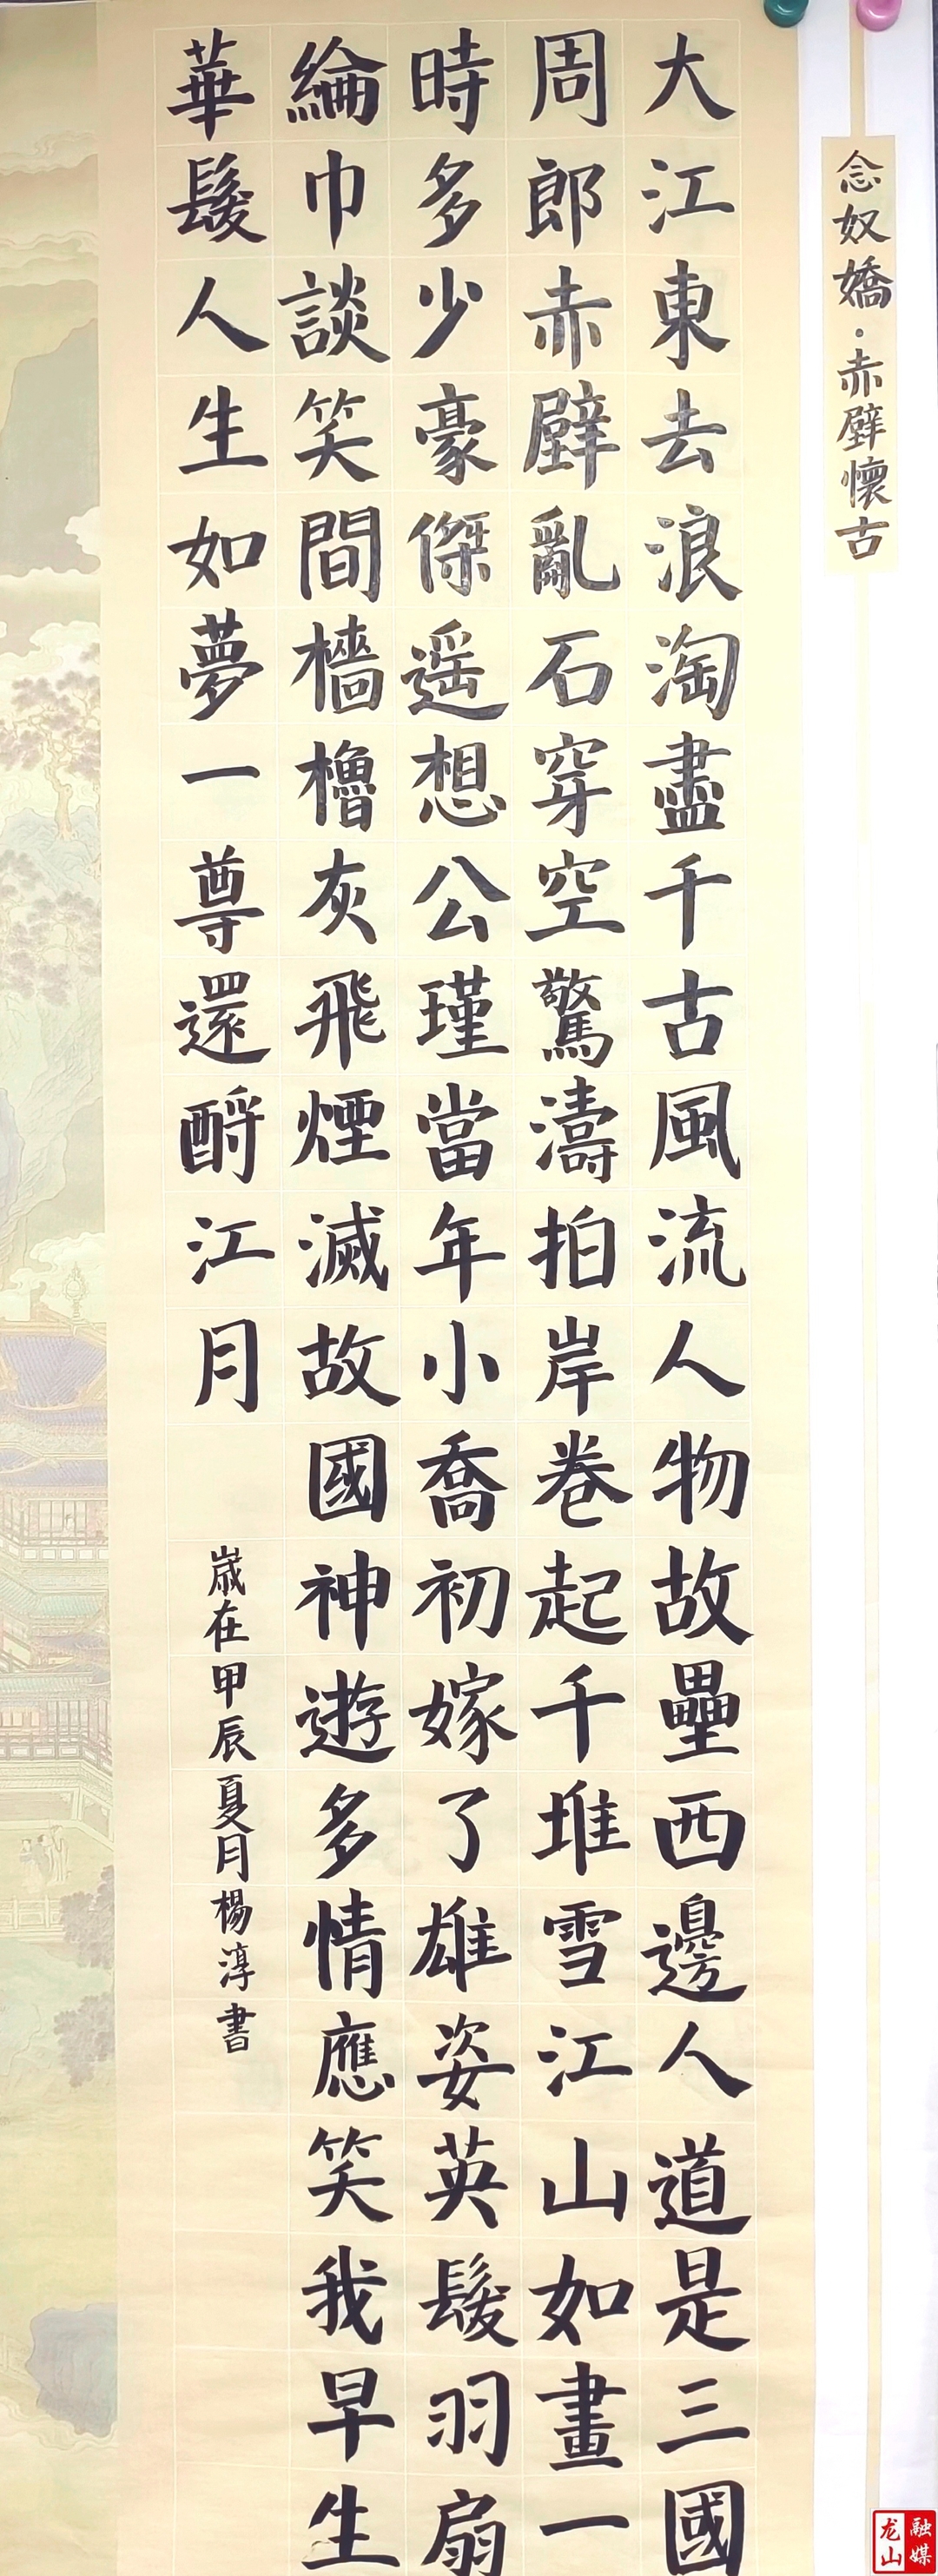 念奴嬌·赤壁懷古
大江東去浪淘盡千古風流人物故壘西邊人道是三國
周郎赤壁亂石穿空驚濤拍岸卷起千堆雪江山如畫一
時多少豪傑遥想公瑾當年小喬初嫁了雄姿英髮羽扇
綸巾談笑間檣櫓灰飛煙滅故國神遊多情應笑我早生
華髮人生如夢一尊還酹江月
歲在甲辰夏月楊淳書
龙山融媒